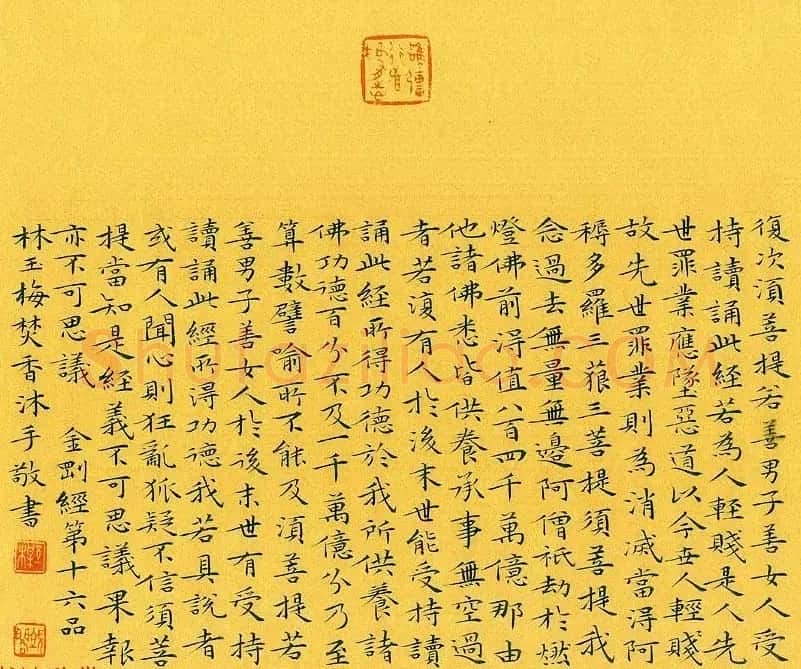 復次須菩提若善男子善女人受
持讀誦此経若為人輕賤是人先
世罪業應墜惡道以今世人輕賤
故先世罪業則為消滅當得阿
耨多羅三藐三菩提須菩提我
念過去無量無邊阿僧祇劫於燃
燈佛前得值八百四千萬億那由
他諸佛悉皆供養承事無空過
者若復有人於後末世能受持讀
誦此経所得功德於我所供養諸
佛功德百分不及一千萬億分乃至
算數譬喻所不能及須菩提若
善男子善女人於後末世有受持
讀誦此經所得功德我若具說者
或有人聞心則狂亂狐疑不信須菩
提當知是経義不可思議果報
亦不可思議 金剛經第十六品
林玉梅焚香沐手敬書
Shufaziliao.COM